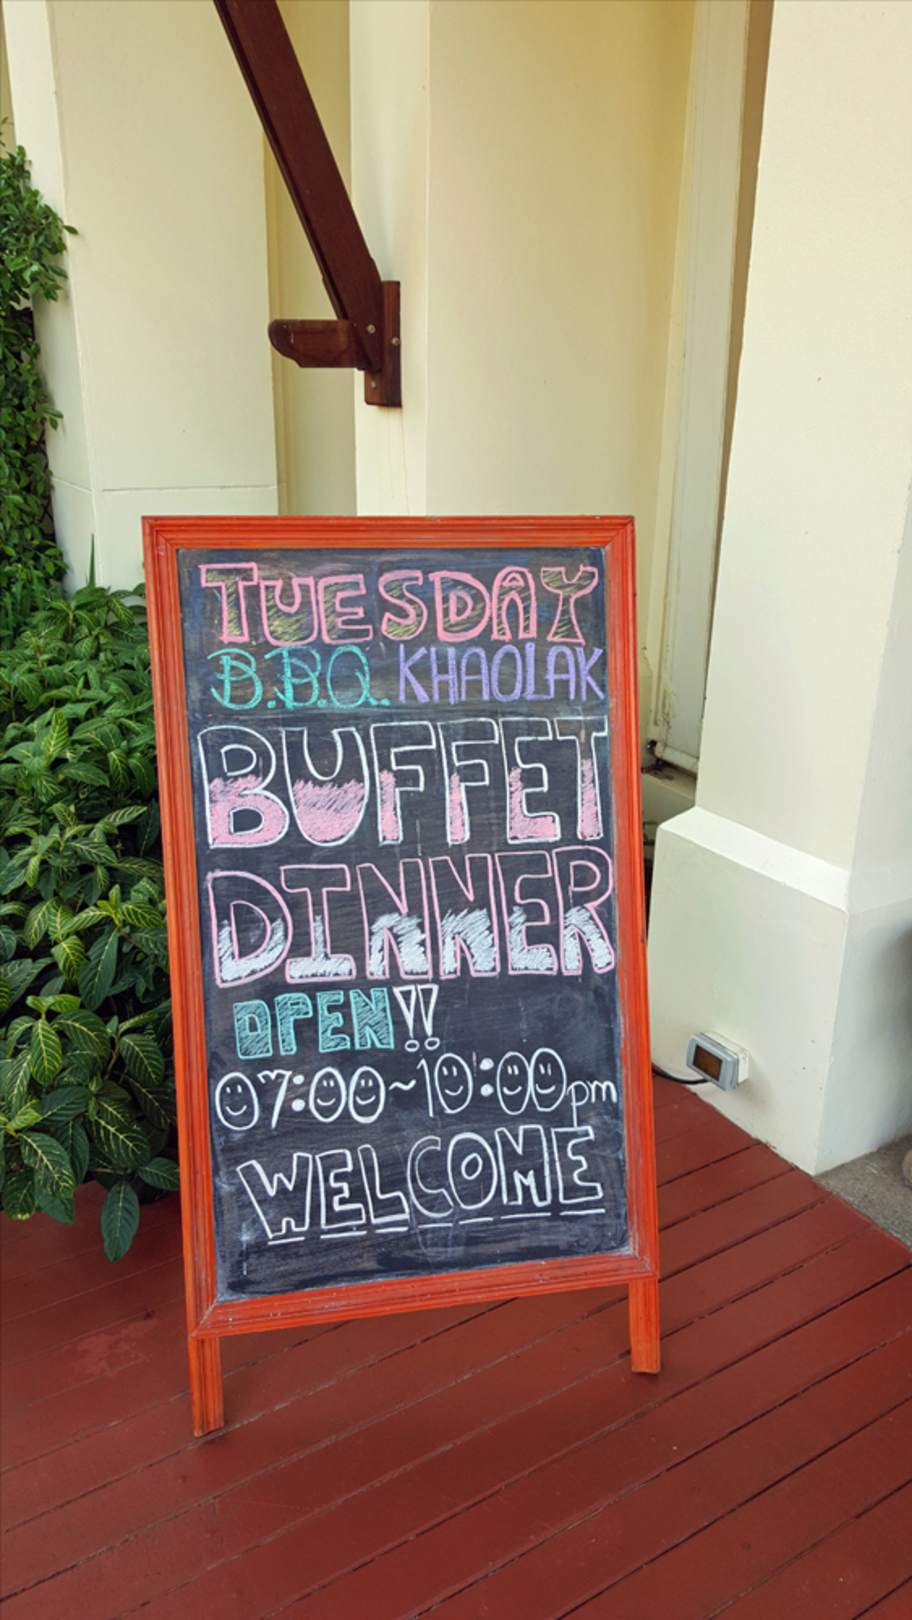 TUESDAY
B.B.Q. KHAOLAK
BUFFET
DINNER
OPEN!!
07:00~10:00pm
WELCOME